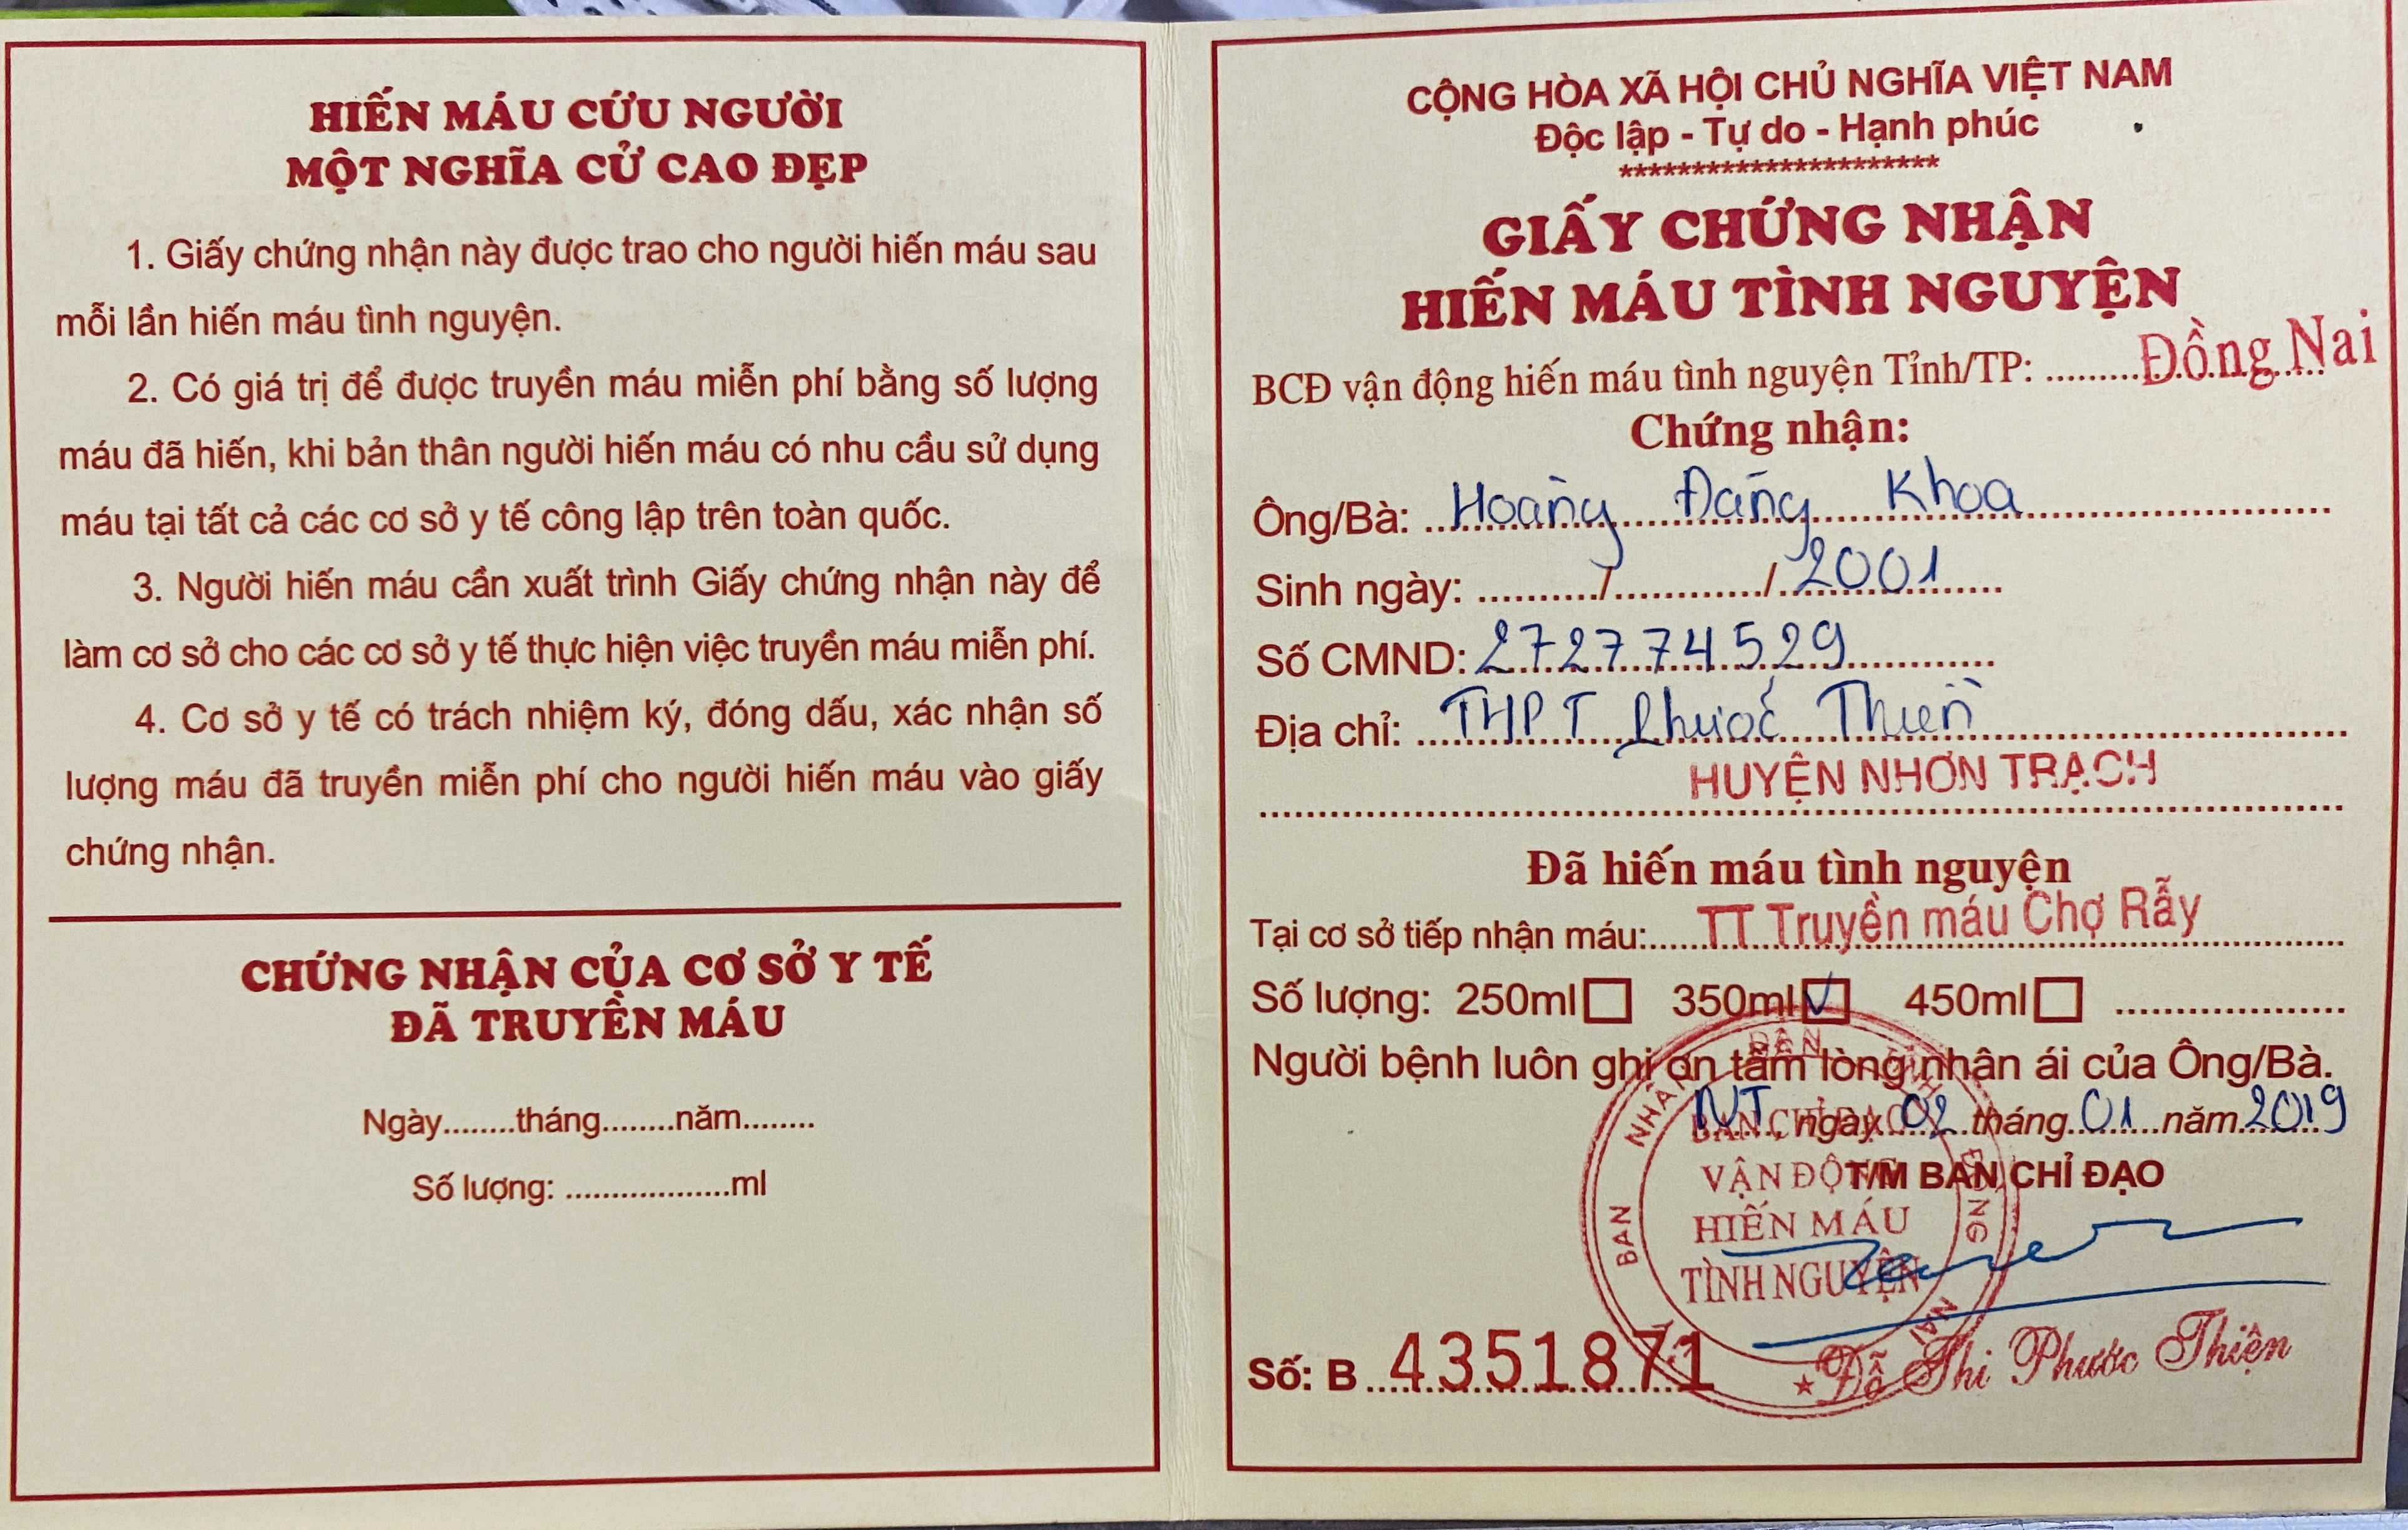 HIẾN MÁU CỨU NGƯỜI
MỘT NGHĨA CỬ CAO ĐẸP
1. Giấy chứng nhận này được trao cho người hiến máu sau
mỗi lần hiến máu tình nguyện.
2. Có giá trị để được truyền máu miễn phí bằng số lượng
máu đã hiến, khi bản thân người hiến máu có nhu cầu sử dụng
máu tại tất cả các cơ sở y tế công lập trên toàn quốc.
3. Người hiến máu cần xuất trình Giấy chứng nhận này để
làm cơ sở cho các cơ sở y tế thực hiện việc truyền máu miễn phí.
4. Cơ sở y tế có trách nhiệm ký, đóng dấu, xác nhận số
lượng máu đã truyền miễn phí cho người hiến máu vào giấy
chứng nhận.
CHỨNG NHẬN CỦA CƠ SỞ Y TẾ
ĐÃ TRUYỀN MÁU
Ngày........tháng........năm........
Số lượng: ..................ml
CỘNG HÒA XÃ HỘI CHỦ NGHĨA VIỆT NAM
Độc lập - Tự do - Hạnh phúc
**********************
GIẤY CHỨNG NHẬN
HIẾN MÁU TÌNH NGUYỆN
BCĐ vận động hiến máu tình nguyện Tỉnh/TP: Đồng Nai
Chứng nhận:
Ông/Bà: Hoàng Đăng Khoa
Sinh ngày: ........../............/ 2001
Số CMND: 272774529
Địa chỉ: THPT Phước Thiền
HUYỆN NHƠN TRẠCH
Đã hiến máu tình nguyện
Tại cơ sở tiếp nhận máu: TT Truyền máu Chợ Rẫy
Số lượng: 250ml☐ 350ml☑ 450ml☐ ....................
Người bệnh luôn ghi ơn tấm lòng nhân ái của Ông/Bà.
NT, ngày 02 tháng 01 năm 2019
T/M BAN CHỈ ĐẠO
BAN NHÂN DÂN TỈNH ĐỒNG NAI
BAN CHỈ ĐẠO
VẬN ĐỘNG
HIẾN MÁU
TÌNH NGUYỆN
Đỗ Thị Phước Thiện
Số: B 4351871